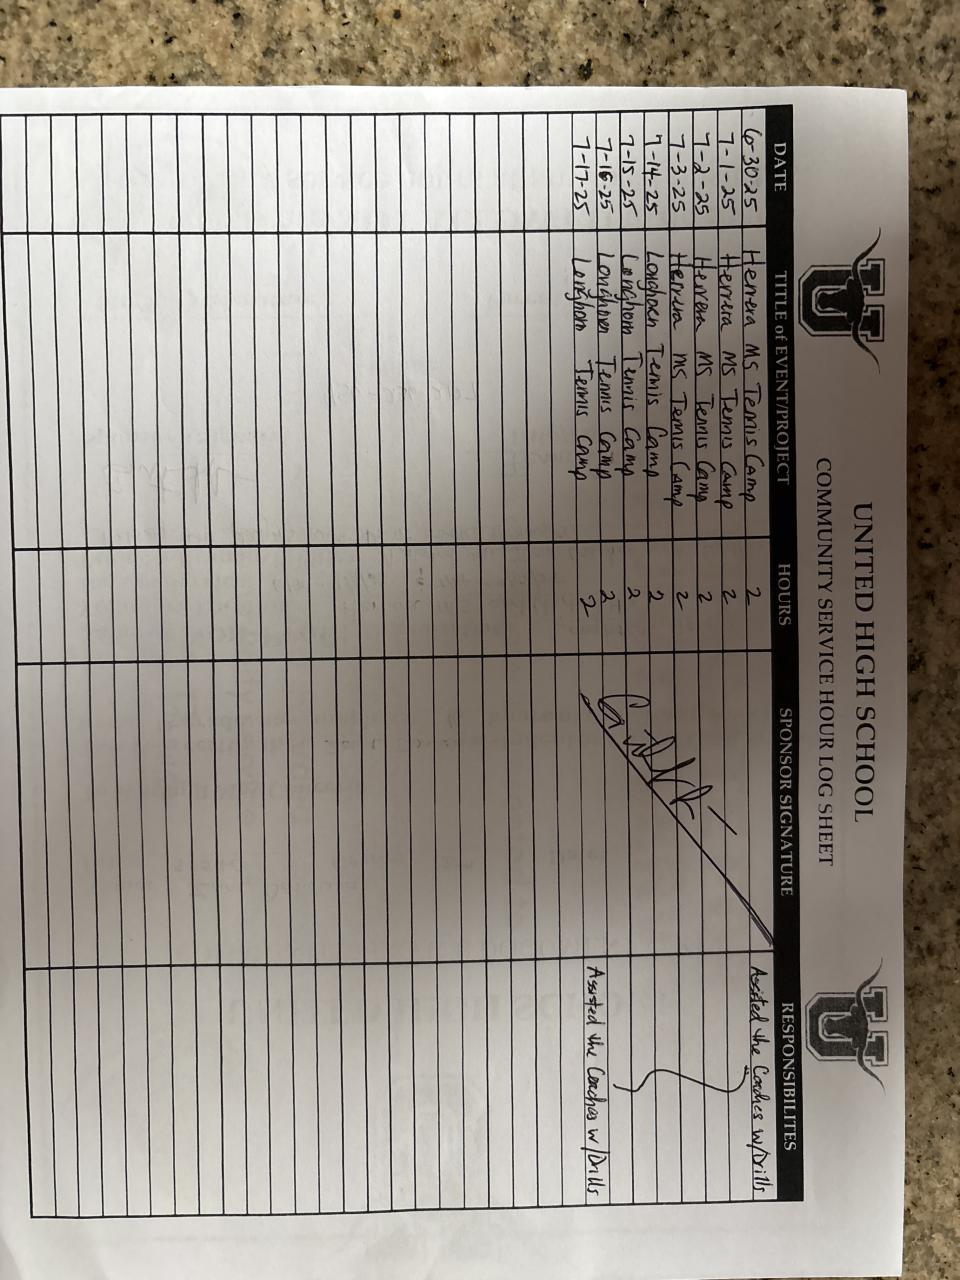 UNITED HIGH SCHOOL
COMMUNITY SERVICE HOUR LOG SHEET
DATE TITLE of EVENT/PROJECT HOURS SPONSOR SIGNATURE RESPONSIBILITES
6-30-25 Herrera MS Tennis Camp 2 Assisted the Coaches w/Drills
7-1-25 Herrera MS Tennis Camp 2
7-2-25 Herrera MS Tennis Camp 2
7-3-25 Herrera MS Tennis Camp 2
7-14-25 Longhorn Tennis Camp 2
7-15-25 Longhorn Tennis Camp 2
7-16-25 Longhorn Tennis Camp 2
7-17-25 Longhorn Tennis Camp 2 Assisted the Coaches w/Drills